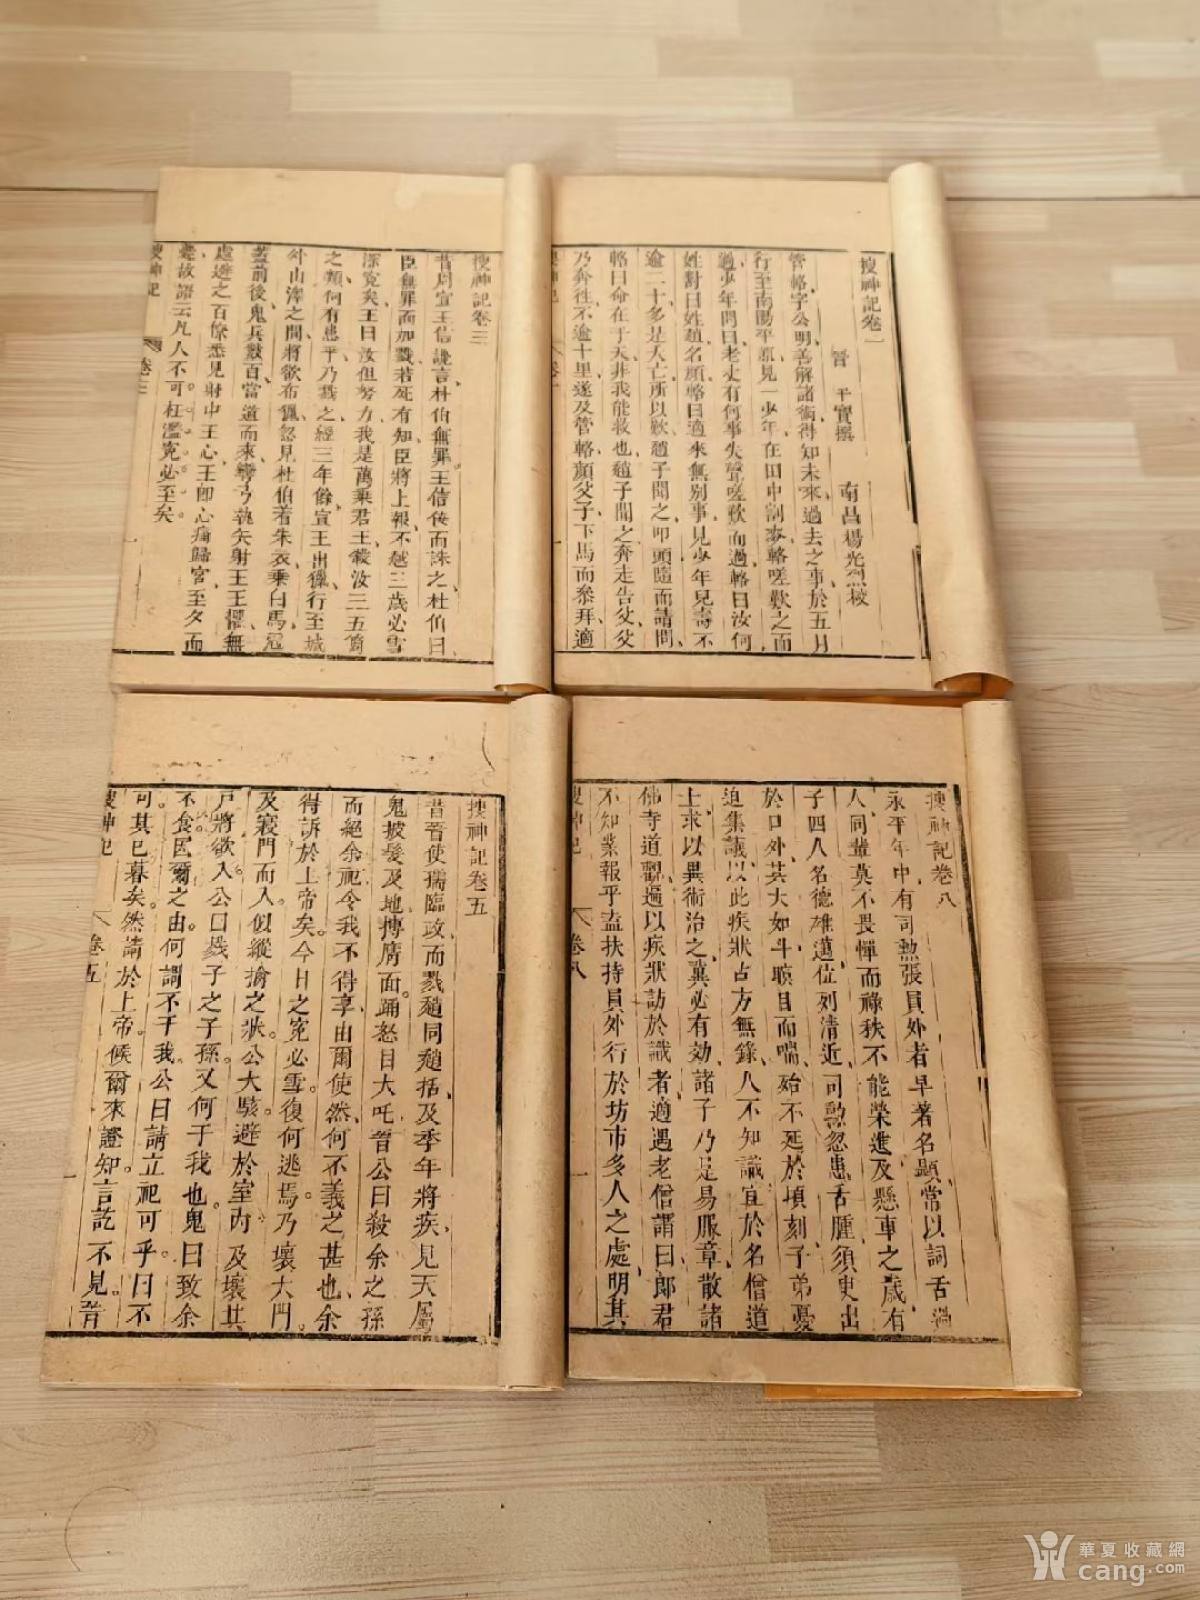 搜神記卷一
晉　干寶撰　南昌楊光烈校
管輅字公明善解諸術得知未來過去之事於五月
行至南陽平原見一少年在田中割麥輅嗟歎之而
過少年問曰老丈有何事失聲嗟歎而過輅曰汝何
姓對曰姓趙名顏輅曰適來無別事見少年兒壽不
逾二十多是大亡所以歎趙子聞之叩頭隨而請問
輅曰命在于天非我能救也趙子聞之奔走告父父
乃奔往不逾十里遂及管輅顏父子下馬而叅拜適
搜神記　卷一　一
搜神記卷三
昔周宣王信讒言杜伯無罪王信佞而誅之杜伯曰
臣無罪而加戮若死有知臣將上報不越三歲必雪
深寃矣王曰汝但努力我是萬乘君王殺汝三五箇
之類何有患乎乃戮之經三年餘宣王出獵行至城
外山澤之間將欲布獵忽見杜伯着朱衣乘白馬冠
蓋前後鬼兵數百當道而來彎弓執矢射王王懼無
處避之百僚悉見射中王心王即心痛歸宮至夕而
薨故語云凡人不可枉濫寃必至矣
搜神記　卷三
搜神記卷八
永平年中有司勲張員外者早著名顯常以詞舌過
人同輩莫不畏憚而祿秩不能榮進及懸車之歲有
子四人名德雄邁位列清近司勲忽患舌腫須臾出
於口外其大如斗瞋目而喘殆不延於頃刻子弟憂
迫集議以此疾狀古方無錄人不知識宜於名僧道
上求以異術治之冀必有効諸子乃足易服章散諸
佛寺道觀遍以疾狀訪於識者適遇老僧謂曰郎君
不知業報乎盍扶持員外行於坊市多人之處明其
搜神記　卷八　一
搜神記卷五
昔晉使孺臨政而戮趙同趙括及季年將疾見天屬
鬼披髮及地摶膺面踊怒目大吒晉公曰殺余之孫
而絕余祀令我不得享由爾使然何不義之甚也余
得訴於上帝矣今日之寃必雪復何逃焉乃壞大門
及寢門而入似縱擒之狀公大駭避於室內及壞其
戸將欲入公曰戮子之子孫又何干我也鬼曰致余
不食因爾之由何謂不干我公曰請立祀可乎曰不
可其巳暮矣然請於上帝候爾來證知言訖不見晉
搜神記　卷五　一
華夏收藏網
cang.com